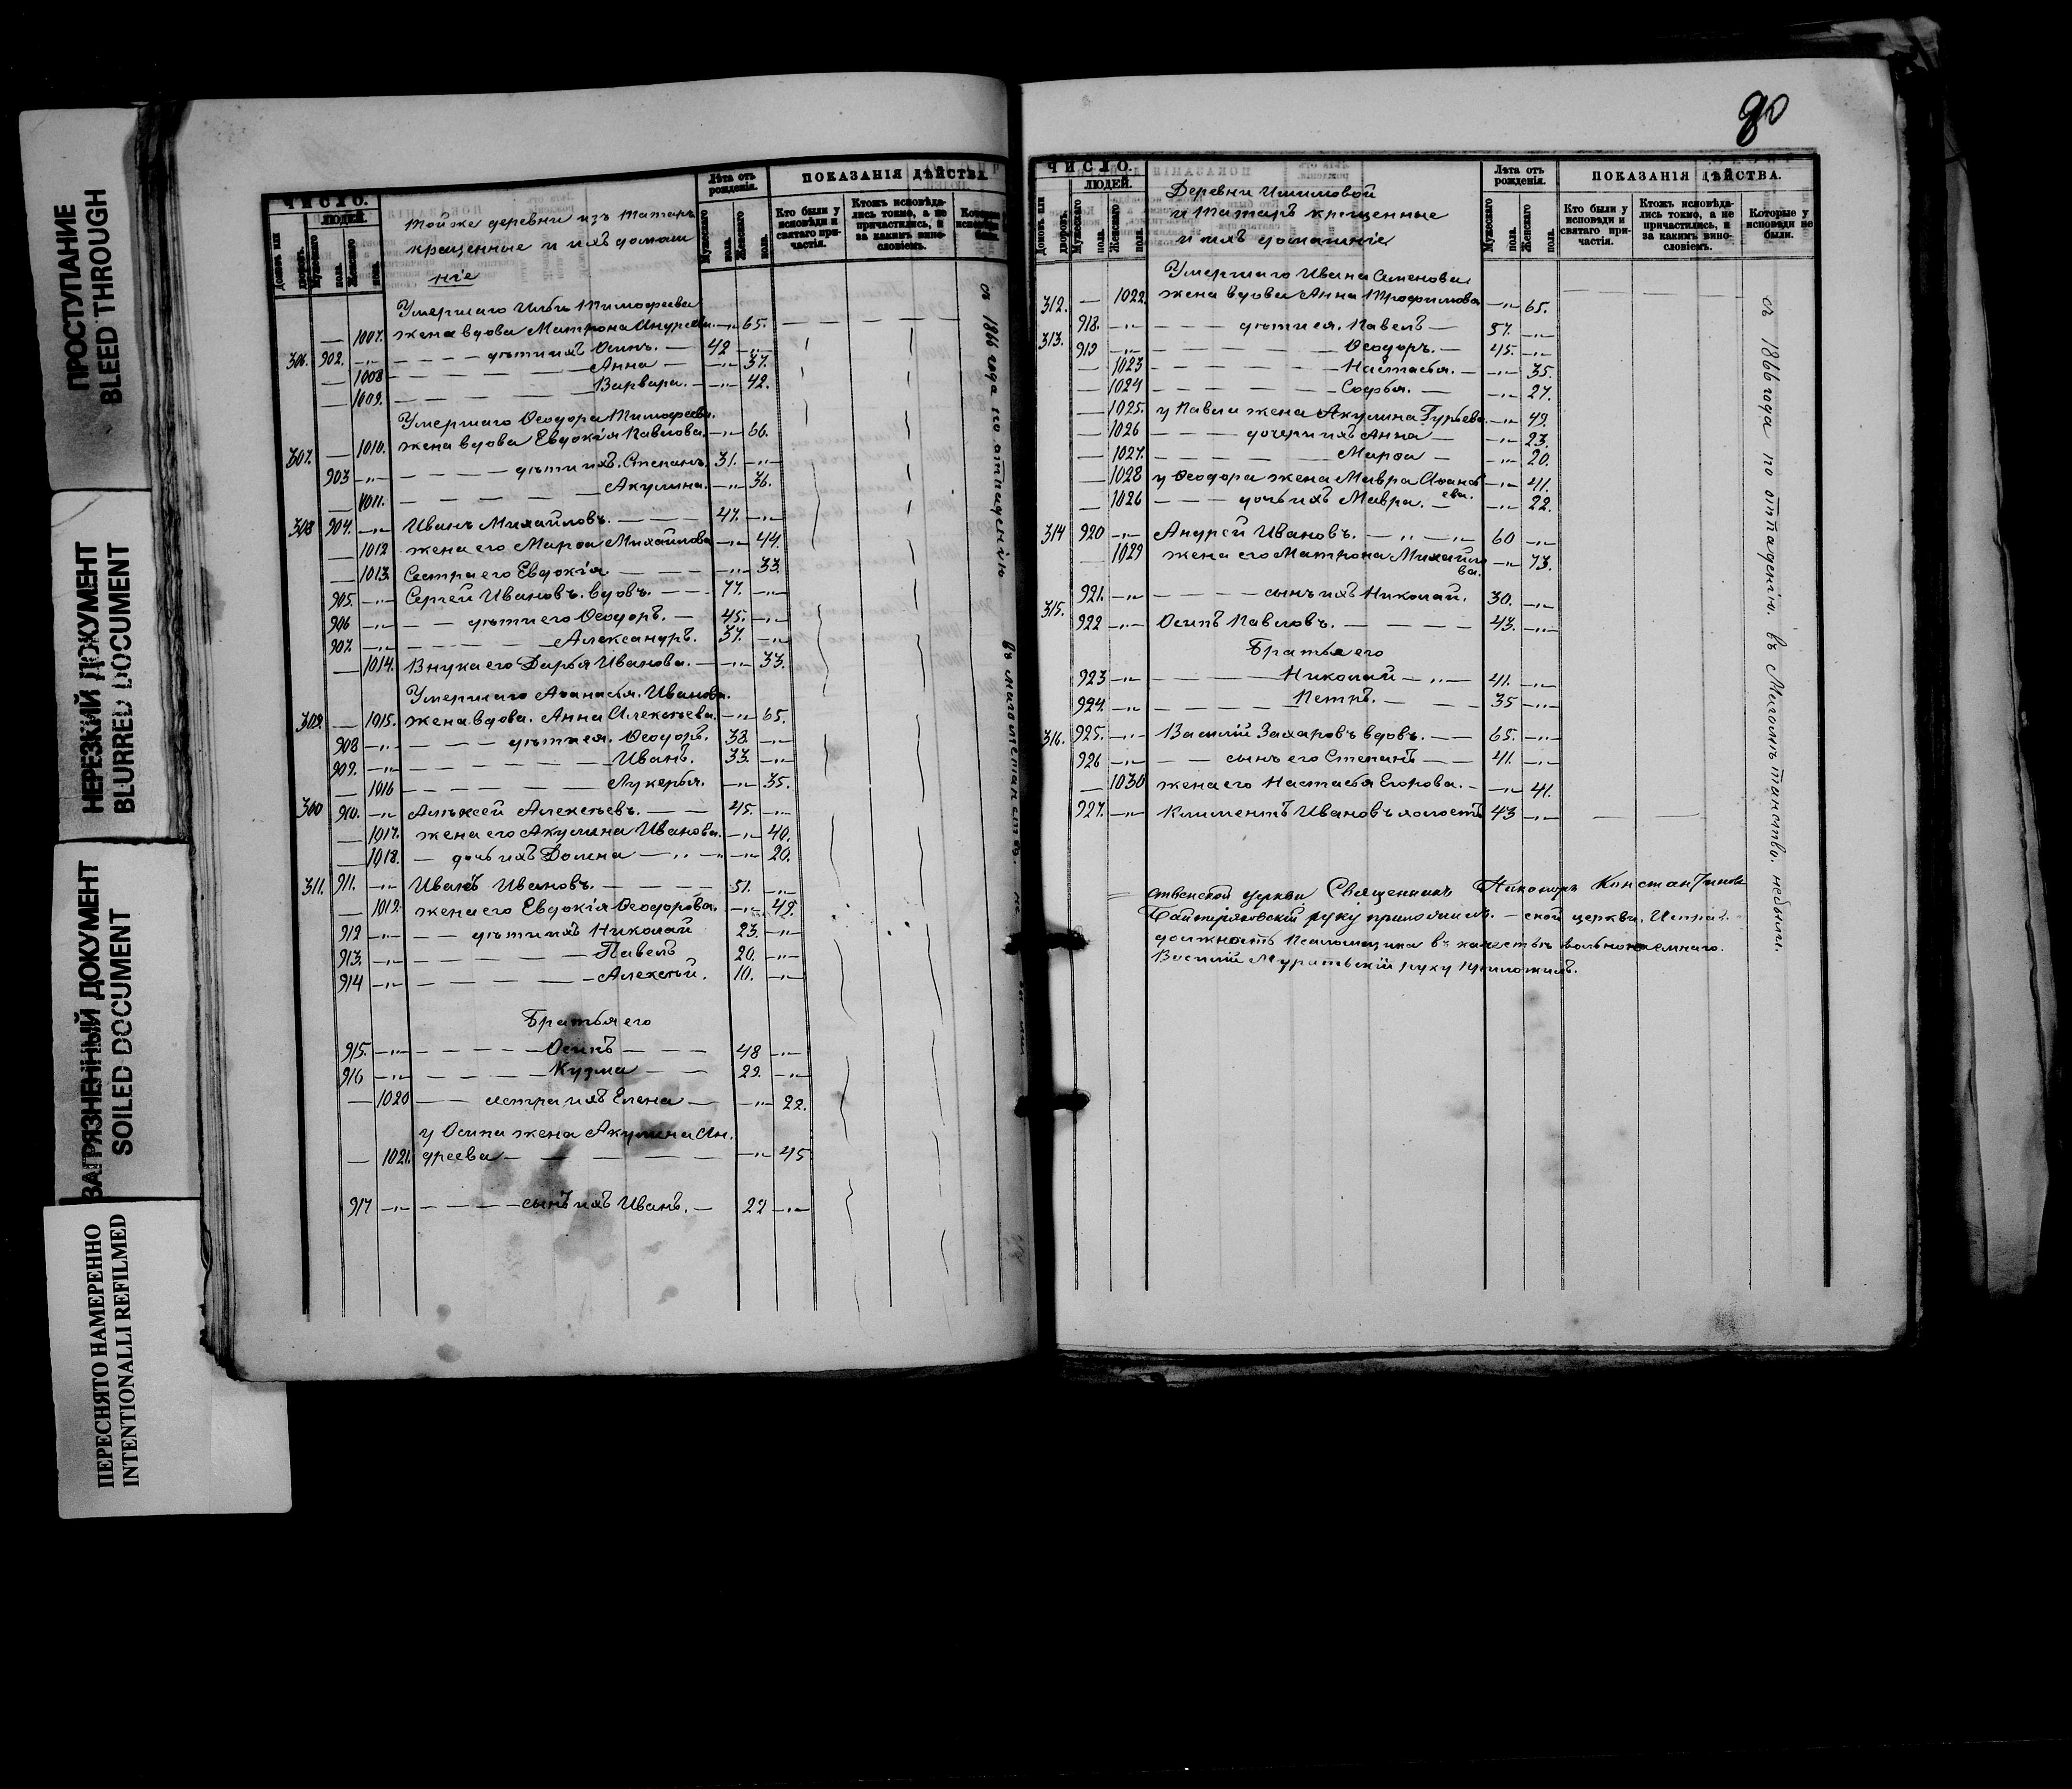 ПРОСТУПАНИЕ
BLEED THROUGH
НЕРЕЗКИЙ ДОКУМЕНТ
BLURRED DOCUMENT
ЗАГРЯЗНЕННЫЙ ДОКУМЕНТ
SOILED DOCUMENT
ПЕРЕСНЯТО НАМЕРЕННО
INTENTIONALLI REFILMED
ЧИСЛО.
ЛЮДЕЙ.
Домовъ или дворовъ.
Мужескаго пола.
Женскаго пола.
Тойже деревни изъ Татаръ
крещенные и ихъ домаш
ніе
Лѣта отъ рожденія.
Мужескаго пола.
Женскаго пола.
ПОКАЗАНІЯ ДѢЙСТВА.
Кто были у исповѣди и святаго причастія.
Ктожъ исповѣдались токмо, а не причастились, и за какимъ винословіемъ.
Которые у исповѣди не были.
Умершаго Ильи Тимофеева
— 1007. жена вдова Матрона Андреева. —"— 65.
306. 902. —"— — — — дѣти ихъ Осипъ. — 42 —"—
— 1008 — — — — Анна — —"— 37.
— 1009. — — — — Варвара. — —"— 42.
Умершаго Ѳеодора Тимофеева.
307. — 1010. жена вдова Евдокія Павлова. —"— 66.
903 —"— — — — дѣти ихъ. Степанъ. 31. —"—
— 1011. — — — — Акулина. —"— 36.
308 904. —"— Иванъ Михайловъ. — — — 47. —"—
— 1012 жена его Марѳа Михайлова —"— 44.
— 1013. Сестра его Евдокія — — — —"— 33.
905. —"— Сергей Ивановъ. вдовъ. — — 77. —"—
906 —"— — — дѣти его Ѳеодоръ. — 45. —"—
907. —"— — — — — Александръ. 37. —"—
— 1014. Внука его Дарья Иванова. — —"— 33.
Умершаго Аѳанасья. Иванова.
309. — 1015. жена вдова. Анна Алексѣева. —"— 65.
908 —"— — — — дѣти ея. Ѳеодоръ. 38. —"—
909. —"— — — — — Иванъ. 33. —"—
— 1016 — — — — Лукерья. —"— 35.
300 910. —"— Алѣксей Алексѣевъ. — — 45. —"—
— 1017. жена его Акулина Иванова. —"— 40.
— 1018. — дочь ихъ Домна —"— —"— 20.
311. 911. —"— Иванъ Ивановъ. — — — — 51. —"—
— 1019. жена его Евдокія Ѳеодорова. —"— 49.
912 —"— — — дѣти ихъ Николай 23. —"—
913. —"— — — — — Павелъ 20. —"—
914 —"— — — — — Алексѣй. 10. —"—
Братья его
915. —"— — — — — Осипъ — — — 48 —"—
916 —"— — — — — Кузма — — 29. —"—
— 1020 — — сестра ихъ Елена — —"— 22.
у Осипа жена Акулина Ан.
— 1021. дреева — — — — — —"— 45
917 —"— — — — — сынъ ихъ Иванъ. — 22 —"—
съ 1866 года по отпаденію въ магометанство. не были
90
ЧИСЛО.
ЛЮДЕЙ.
Домовъ или дворовъ.
Мужескаго пола.
Женскаго пола.
Деревни Ишимовой
и Татаръ крещенные
и ихъ домашніе
Лѣта отъ рожденія.
Мужескаго пола.
Женскаго пола.
ПОКАЗАНІЯ ДѢЙСТВА.
Кто были у исповѣди и святаго причастія.
Ктожъ исповѣдались токмо, а не причастились, и за какимъ винословіемъ.
Которые у исповѣди не были.
Умершаго Ивана Семенова
312. — 1022. жена вдова Анна Трофимова —"— 65.
918. —"— — — — дѣти ея. Павелъ — 57. —"—
313. 919 —"— — — — — Ѳеодоръ. — 45. —"—
— 1023 — — — — Настасья. — —"— 35.
— 1024 — — — — Софья. — —"— 27.
— 1025. у Павла жена Акулина Гурьева. —"— 49.
— 1026 — — — дочери ихъ Анна — —"— 23.
— 1027. — — — — Марѳа — —"— 20.
— 1028 у Ѳеодора жена Мавра Аѳанась
ева. —"— 41.
— 1026 — — — дочь ихъ Мавра. — —"— 22.
314 920 —"— Андрей Ивановъ. —"— —"— 60 —"—
— 1029 жена его Матрона Михайло
ва. —"— 73.
921. —"— — — — — сынъ ихъ Николай. 30. —"—
315. 922 —"— Осипъ Павловъ. — — — — 43. —"—
Братья его
923 —"— — — — — Николай —"— 41. —"—
924. —"— — — — — Петръ. — — 35 —"—
316. 925. —"— Василій Захаровъ вдовъ. — — 65. —"—
926 —"— — — сынъ его Степанъ — — 41. —"—
— 1030 жена его Настасья Егорова. — —"— 41.
927. —"— Климентъ Ивановъ холостъ 43 —"—
ственской церкви Священникъ Никаноръ Константиновъ
Байтеряковскій руку приложилъ. — ской церкви. Исправ.
должность Псаломщика въ качествѣ вольнонаемнаго.
Василій Муратовскій руку приложилъ.
съ 1866 года по отпаденію. въ Магометанство. не были.